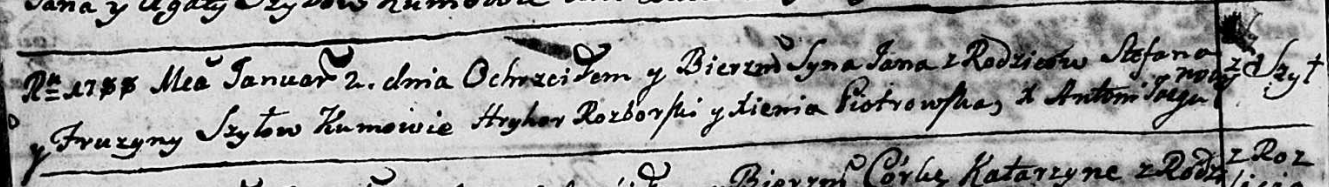 Jana y Agaty Szyłow Kumowie
Rꝛ 1788 Mca Januar 2. dnia Ochrzciłem y Bierzm Syna Jana z Rodziców Stefana
y Fruzyny Szyłow Kumowie Hryhor Rozborski y Xienia Piotrowska, X Antoni
z Szył
Bierzm Córkę Katarzynę z Rodzi
z Roz